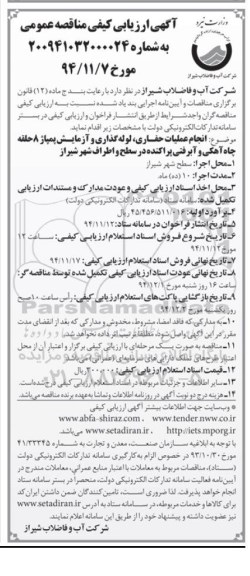 آگهی ارزیابی کیفی مناقصه عمومی
به شماره ۲۰۰۹۴۱۰۳۲۰۰۰۰۲۴
مورخ ۹۴/۱۱/۷
وزارت نیرو
شرکت آب و فاضلاب شیراز
شرکت آب و فاضلاب شیراز در نظر دارد با رعایت بند ج ماده (۱۲) قانون
برگزاری مناقصات و آیین‌نامه اجرایی بند یاد شده نسبت به ارزیابی کیفی
مناقصه‌گران واجد شرایط از طریق انتشار فراخوان و ارزیابی کیفی در بستر
سامانه تدارکات الکترونیکی دولت با مشخصات زیر اقدام نماید.
موضوع: انجام عملیات حفاری، لوله‌گذاری و آزمایش پمپاژ ۸ حلقه
چاه آهکی و آبرفتی پراکنده در سطح و اطراف شهر شیراز
۱- محل اجرا: سطح شهر شیراز
۲- مدت اجرا: ۱۰ (ده) ماه.
۳- محل اخذ اسناد ارزیابی کیفی و عودت مدارک و مستندات ارزیابی
تکمیل شده: سامانه ستاد (سامانه تدارکات الکترونیکی دولت)
۵- تاریخ انتشار فراخوان در سامانه ستاد: ۹۴/۱۱/۱۲
۶- تاریخ شروع فروش اسناد استعلام ارزیابی کیفی: ساعت ۱۲
مورخ ۹۴/۱۱/۱۲
۷- تاریخ نهائی فروش اسناد استعلام ارزیابی کیفی: ۹۴/۱۱/۱۷
۸- تاریخ نهائی عودت اسناد ارزیابی کیفی تکمیل شده توسط مناقصه‌گر:
ساعت ۱۶ روز شنبه مورخ ۹۴/۱۲/۱
۹- تاریخ بازگشایی پاکت‌های استعلام ارزیابی کیفی: رأس ساعت ۱۰ صبح
روز یکشنبه مورخ ۹۴/۱۲/۲
۱۰- به مدارکی که فاقد امضا، مشروط، مخدوش و مدارکی که بعد از انقضای مدت
۱۱- مناقصه به صورت یک مرحله‌ای با ارزیابی کیفی برگزار و اعتبار آن از محل
۱۲- قیمت اسناد استعلام ارزیابی کیفی:
۱۳- سایر اطلاعات و جزئیات مربوطه در اسناد استعلام ارزیابی کیفی درج شده است.
۱۴- هزینه درج دو نوبت آگهی در روزنامه اطلاعات و تماماً به عهده برنده مناقصه می‌باشد.
وب‌سایت جهت اطلاعات بیشتر آگهی ارزیابی کیفی
www.abfa-shiraz.com . www.tender.nww.co.ir
www.setadiran.ir . http://iets.mporg.ir می‌باشد.
با توجه به ابلاغیه سازمان صنعت، معدن و تجارت به شماره ۴۱/۳۳۳۴۵
مورخ ۹۴/۱۰/۳۰ در خصوص الزام به‌کارگیری سامانه تدارکات الکترونیکی دولت
(ستاد)، مناقصات مربوط به معاملات با اعتبار منابع عمرانی، معاملات مندرج در
آیین‌نامه فعالیت سامانه تدارکات الکترونیکی دولت، منحصراً در بستر سامانه ستاد
انجام خواهد پذیرفت. لذا ضروری است، تامین‌کنندگان ضمن داشتن ایران کد
برای کالاها و خدمات مربوطه، در سامانه ستاد به آدرس www.setadiran.ir
نیز عضویت داشته و پیشنهاد خود را از طریق این سامانه اعلام نمایند.
شرکت آب و فاضلاب شیراز